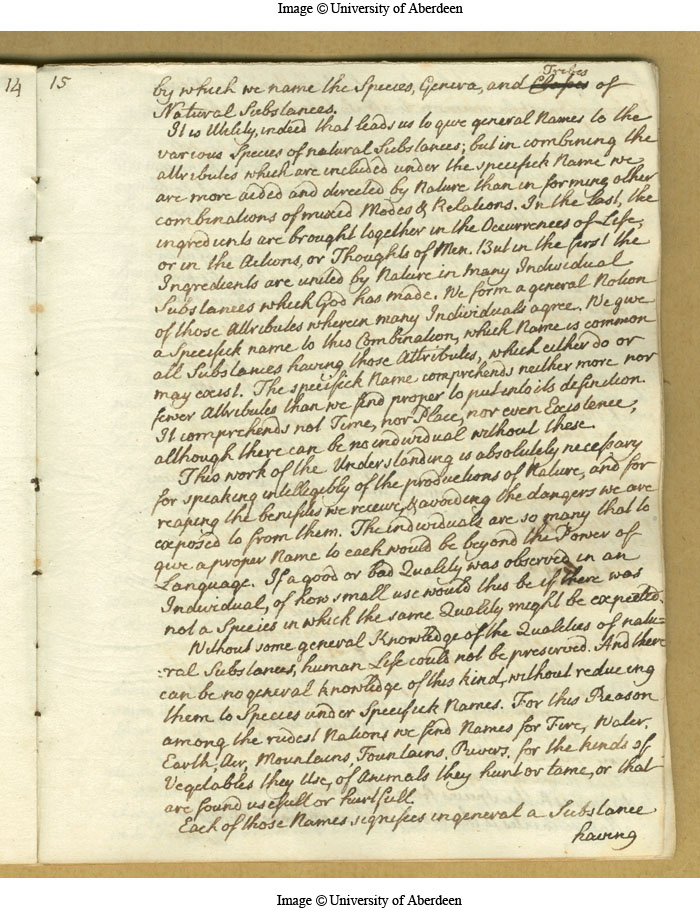 Image © University of Aberdeen
14
15
by which we name the Species, Genera, and Classes Tribes of
Natural Substances.
It is Utility, indeed that leads us to give general Names to the
various Species of natural Substances; but in combining the
attributes which are included under the specifick Name we
are more aided and directed by Nature than in forming other
combinations of mixed Modes & Relations. In the last, the
ingredients are brought together in the Occurrences of Life,
or in the Actions, or Thoughts of Men. But in the first the
Ingredients are united by Nature in many Individual
Substances which God has made. We form a general Notion
of those Attributes wherein many Individuals agree. We give
a Specifick name to this Combination, which Name is common
all Substances having those Attributes, which either do or
may exist. The specifick Name comprehends neither more nor
fewer Attributes than we find proper to put into its definition
It comprehends not Time, nor Place, nor even Existence,
although there can be no individual without these
This work of the Understanding is absolutely necessary
for speaking intelligibly of the productions of Nature, and for
reaping the benefits we receive, & avoiding the dangers we are
exposed to from them. The individuals are so many that to
give a proper Name to each would be beyond the Power of
Language. If a good or bad Quality was observed in an
Individual, of how small use would this be if there was
not a Species in which the same Quality might be expected.
Without some general Knowledge of the Qualities of natu=
=ral Substances, human Life could not be preserved. And there
can be no general knowledge of this kind, without reducing
them to Species under Specifick Names. For this Reason
among the rudest Nations we find Names for Fire, Water,
Earth, Air, Mountains, Fountains, Rivers, for the kinds of
Vegetables they Use, of Animals they hunt or tame, or that
are found usefull or hurtfull.
Each of those Names signifies in general a Substance
having
Image © University of Aberdeen